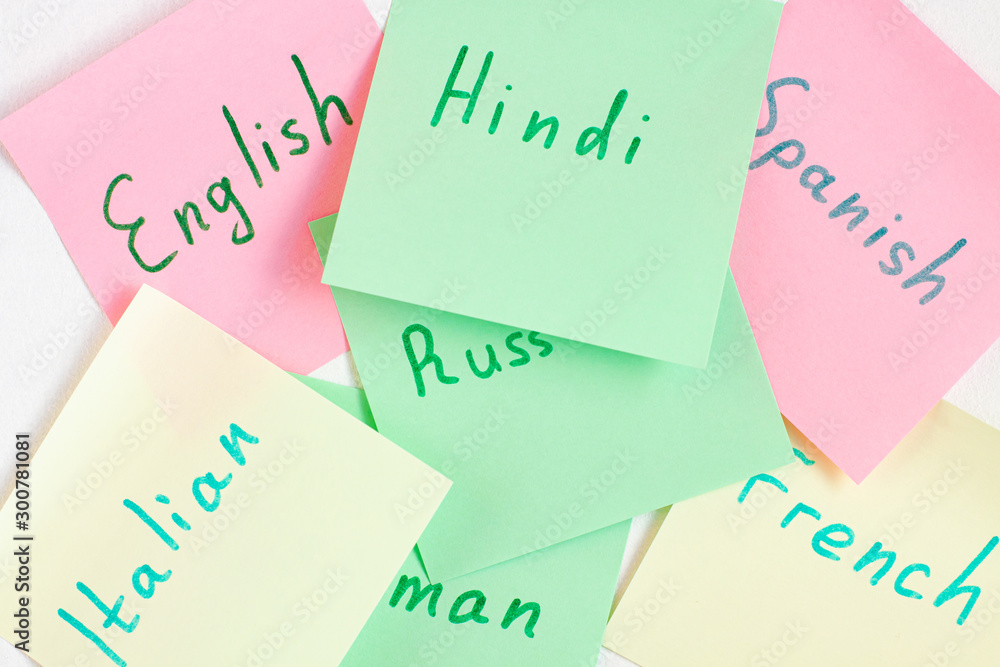 English
Hindi
Spanish
Russ
Italian
man
French
Adobe Stock | #300781081